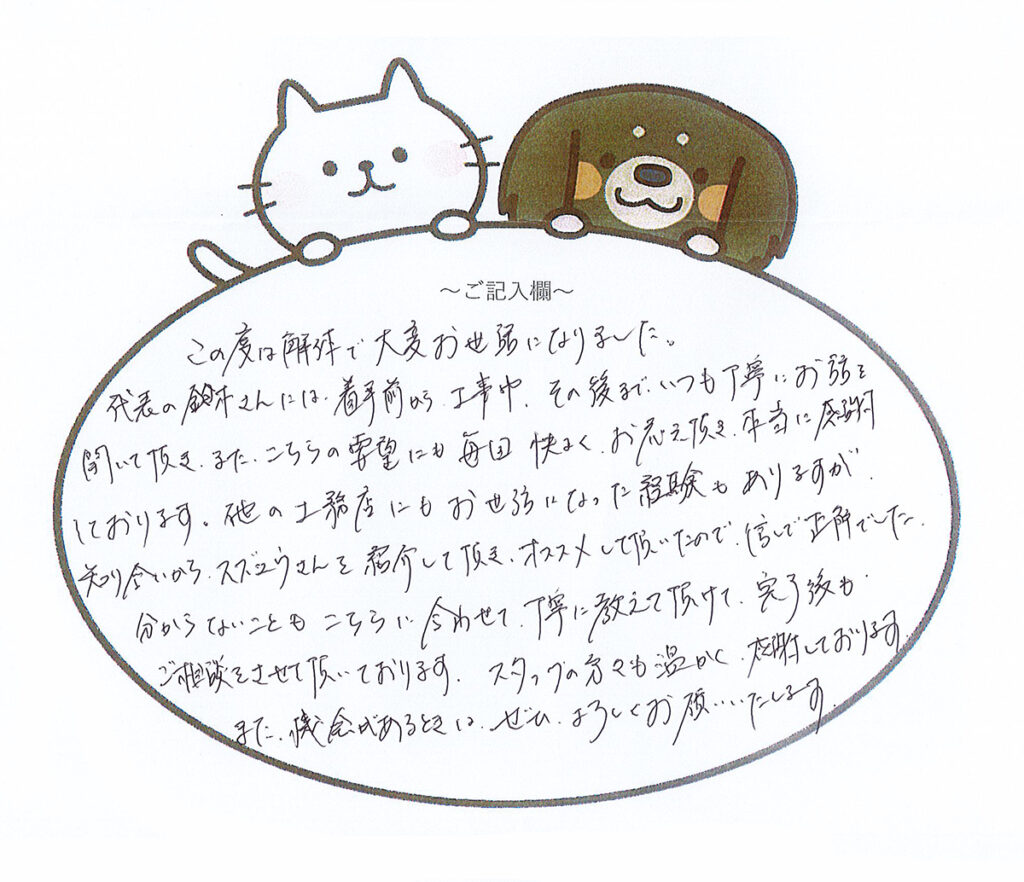 ～ご記入欄～
この度は解体で大変お世話になりました。
代表の鈴木さんには、着手前から、工事中、その後まで、いつも丁寧にお話を
聞いて頂き、また、こちらの要望にも毎回快よく、お応え頂き、本当に感謝
しております。他の工務店にもお世話になった経験もありますが、
知り合いから、スズユウさんを紹介して頂き、オススメして頂いたので、信じて正解でした。
分からないこともこちらに合わせて、丁寧に教えて頂けて、完了後も、
ご相談をさせて頂いております。スタッフの方々も温かく、感謝しております。
また、機会があるときは、ぜひ、よろしくお願いいたします。